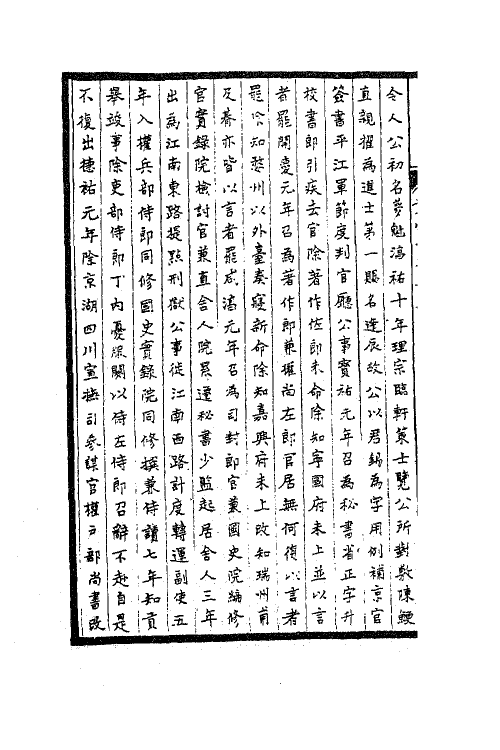 令人公初名夢魁淳祐十年理宗臨軒策士覽公所對敷陳鯁
直親擢為進士第一賜名逢辰故公以君錫為字用例補京官
簽書平江軍節度判官廳公事寶祐元年召為秘書省正字升
校書郎引疾去官除著作佐郎未命除知寧國府未上並以言
者罷開慶元年召為著作郎兼權尚左郎官居無何復以言者
罷除知婺州以外臺奏寢新命除知嘉興府未上改知瑞州甫
及朞亦皆以言者罷咸淳元年召為司封郎官兼國史院編修
官實錄院檢討官兼直舍人院累遷秘書少監起居舍人三年
出為江南東路提點刑獄公事徙江南西路計度轉運副使五
年入權兵部侍郎同修國史實錄院同修撰兼侍讀七年知貢
舉竣事除吏部侍郎丁內憂服闋以侍左侍郎召辭不赴自是
不復出徳祐元年除京湖四川宣撫司參謀官權戸部尚書改